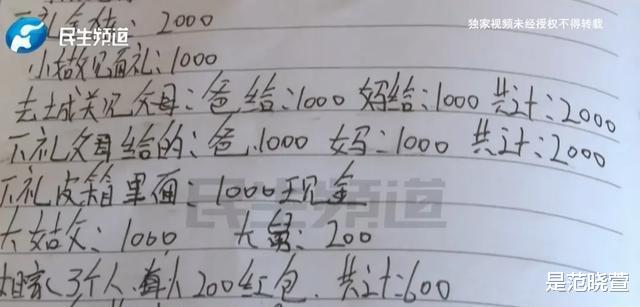 民生频道
独家视频未经授权不得转载
下礼: 2000
小姑见面礼:1000
去城关见父母:爸给:1000 妈给:1000 共计:2000
下礼父母给的:爸:1000 妈:1000 共计:2000
下礼皮箱里面:1000现金
民生频道
大姑父:1000 大舅:200
3个人 200红包. 共计:600
是范晓萱